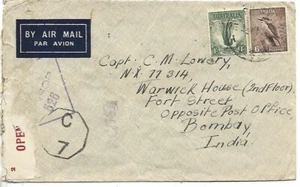 BY AIR MAIL
PAR AVION
AUSTRALIA
6D
Capt. C. M. Lowery,
NX 77314,
Warwick House (2nd Floor)
Fort Street
Opposite Post Office
Bombay,
India.
928
C
7
2 OPE